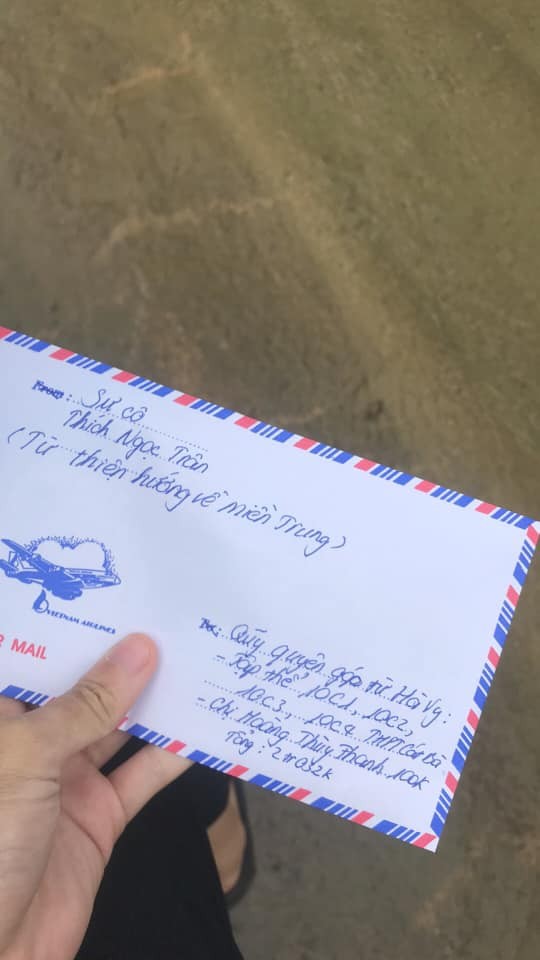 From: Sư cô
Thích Ngọc Trân
(Từ thiện hướng về miền Trung)
VIETNAM AIRLINES
R MAIL
To: Quỹ quyên góp từ Hà Vy:
- Tập thể 10C1, 10C2,
10C3, 10C4 THPT Cát Bà
- Chị Hoàng Thùy Thanh 100k
Tổng: 2tr032k